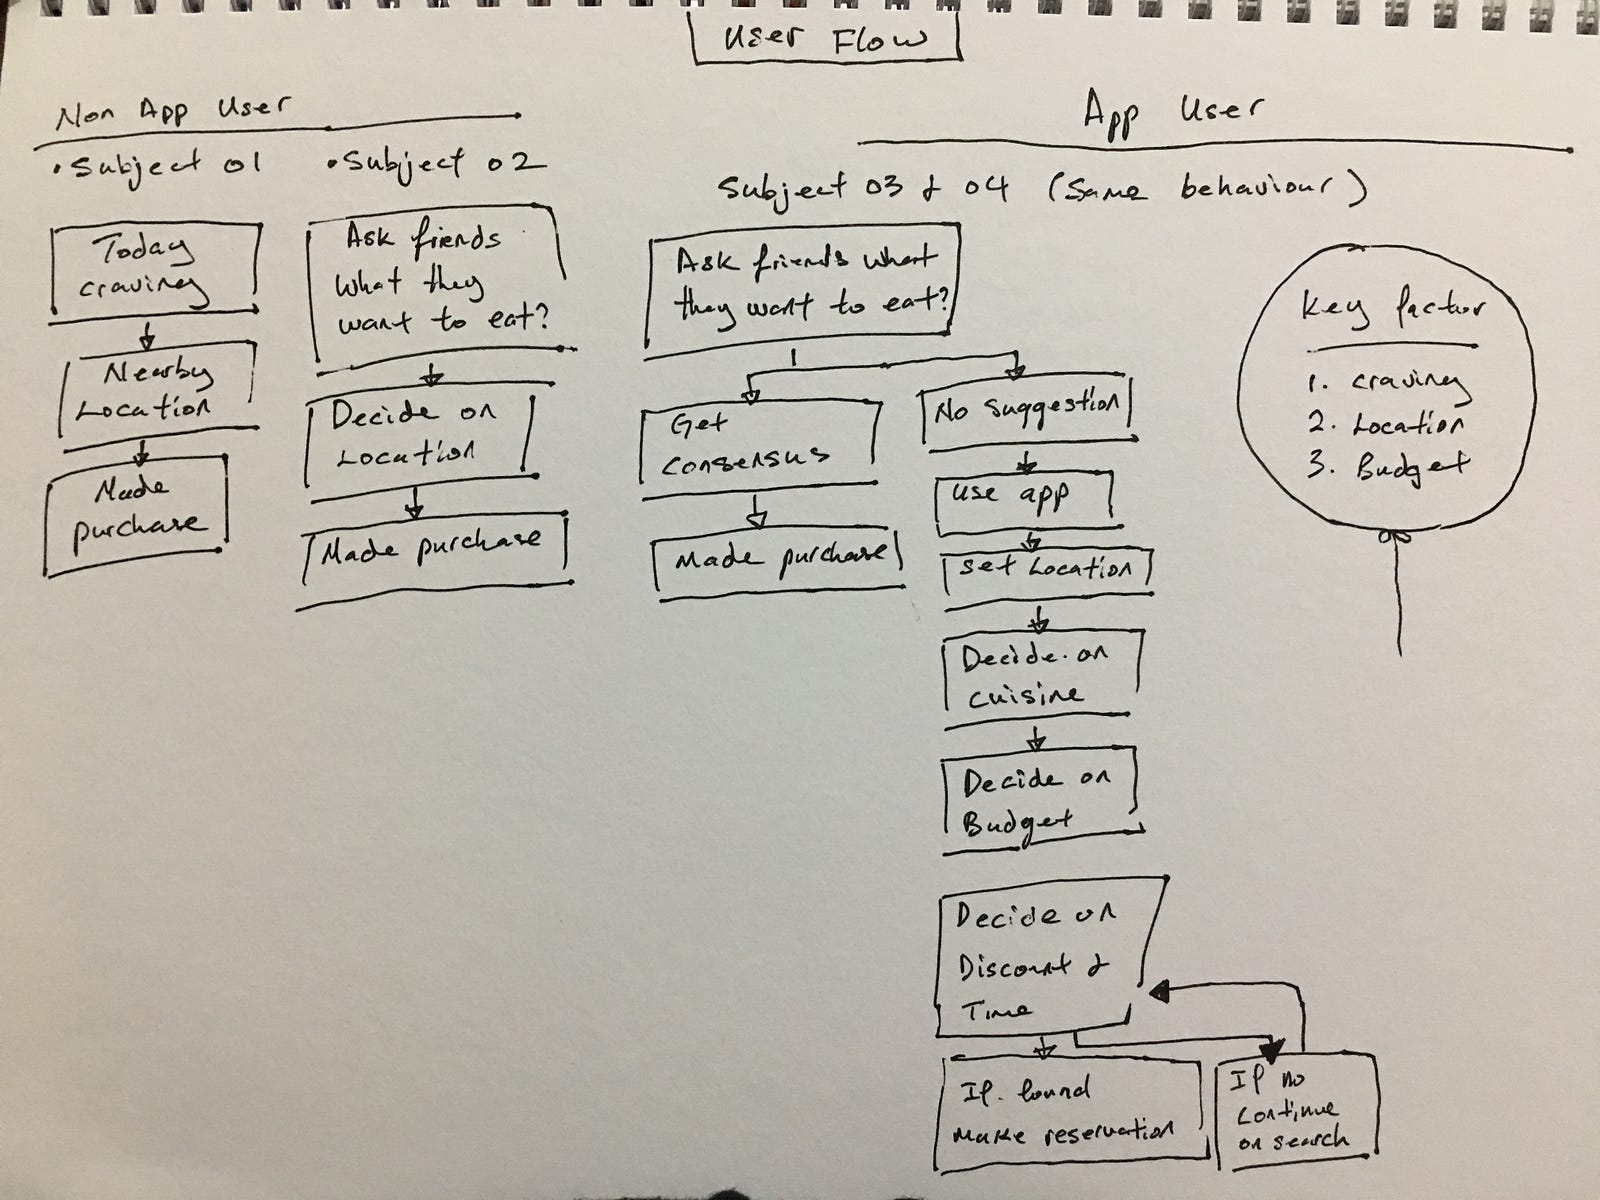 User Flow
Non App User
• Subject 01
• Subject 02
Today
craving
Nearby
Location
Made
purchase
Ask friends
what they
want to eat?
Decide on
Location
Made purchase
App User
Subject 03 & 04 (Same behaviour)
Ask friends what
they want to eat?
Get
consensus
Made purchase
No suggestion
use app
set Location
Decide on
cuisine
Decide on
Budget
Decide on
Discount &
Time
If found
make reservation
If no
continue
on search
Key factor
1. craving
2. Location
3. Budget